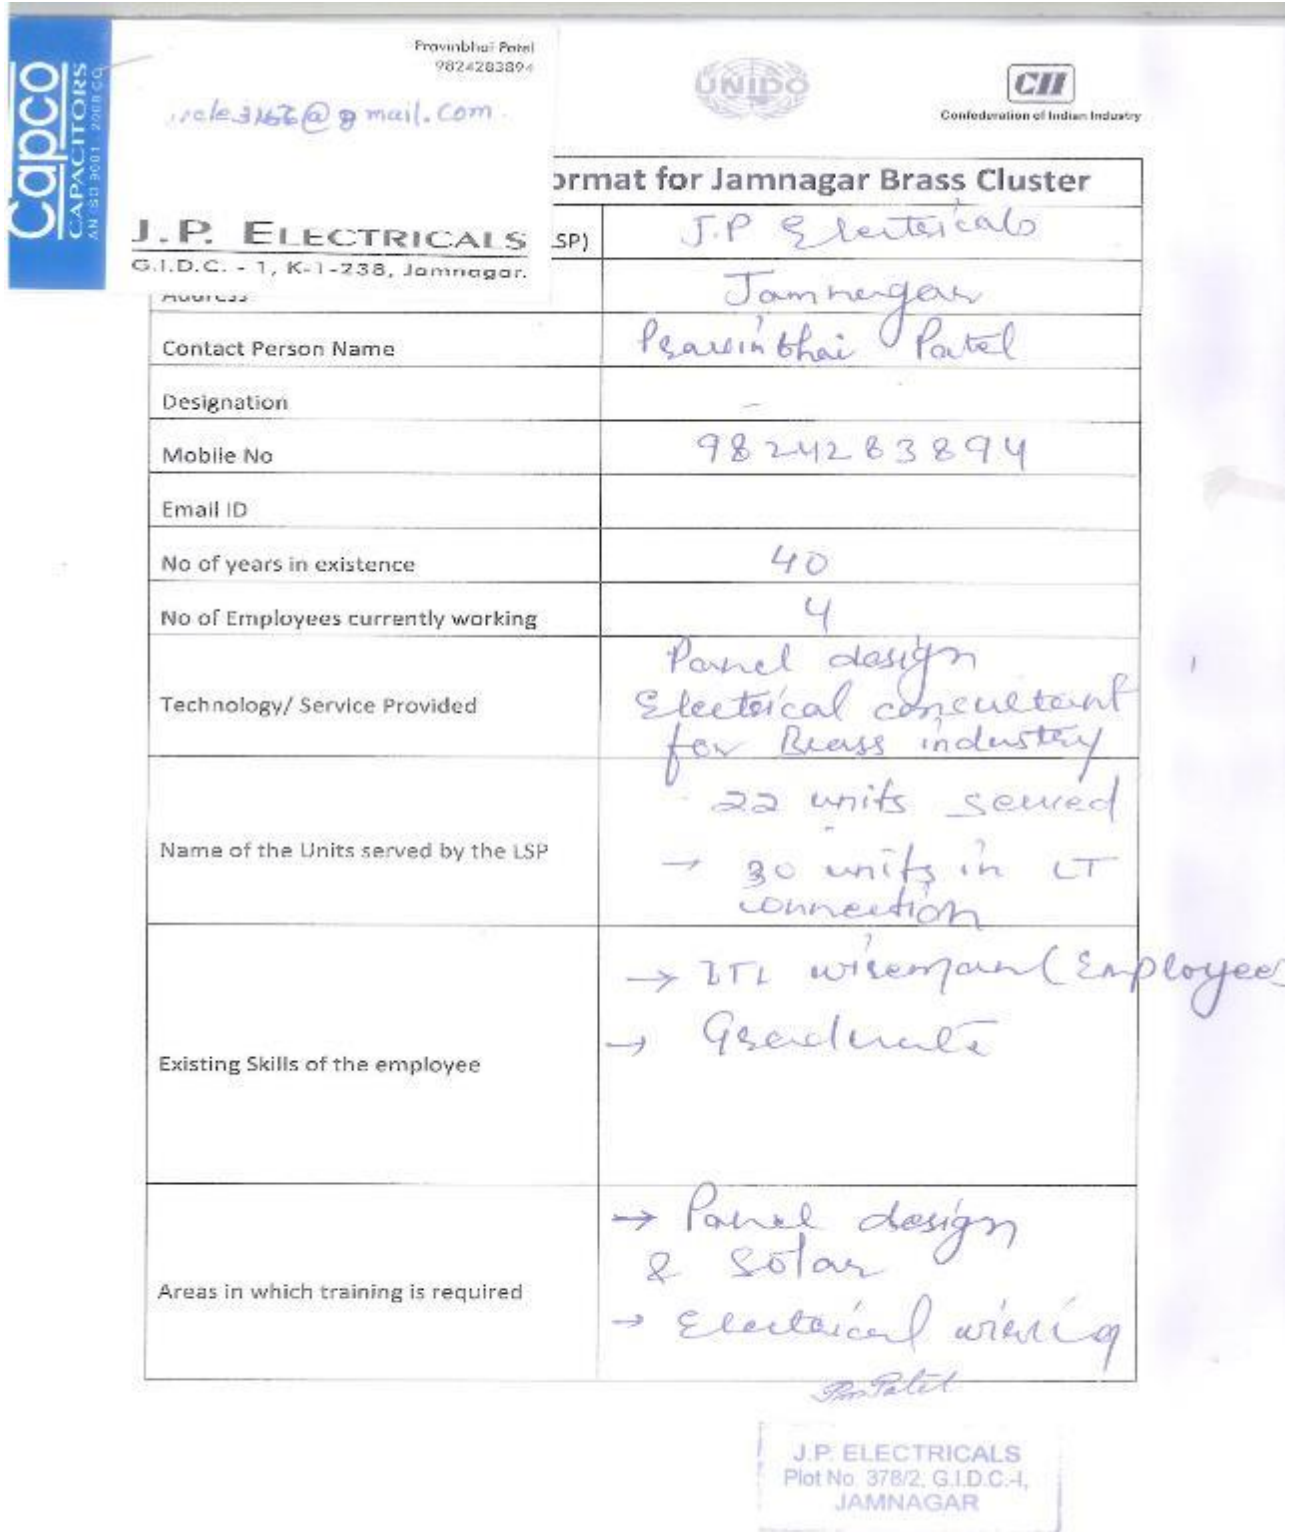 Capco
CAPACITORS
AN ISO 9001 : 2008 CO.
Pravinbhai Patel
9824283894
@gmail.com.
J.P. ELECTRICALS
G.I.D.C. - 1, K-1-238, Jamnagar.
UNIDO
CII
Confederation of Indian Industry
ormat for Jamnagar Brass Cluster
SP) J.P Electricals
Address Jamnagar
Contact Person Name Pravinbhai Patel
Designation -
Mobile No 9824283894
Email ID
No of years in existence 40
No of Employees currently working 4
Technology/ Service Provided Panel design
Electrical consultant
for Brass industry
Name of the Units served by the LSP 22 units served
→ 30 units in LT
connection
Existing Skills of the employee → ITI wireman (Employee
→ Graduate
Areas in which training is required → Panel design
& Solar
→ Electrical wiring
Patel
J.P. ELECTRICALS
Plot No. 378/2, G.I.D.C.-I,
JAMNAGAR